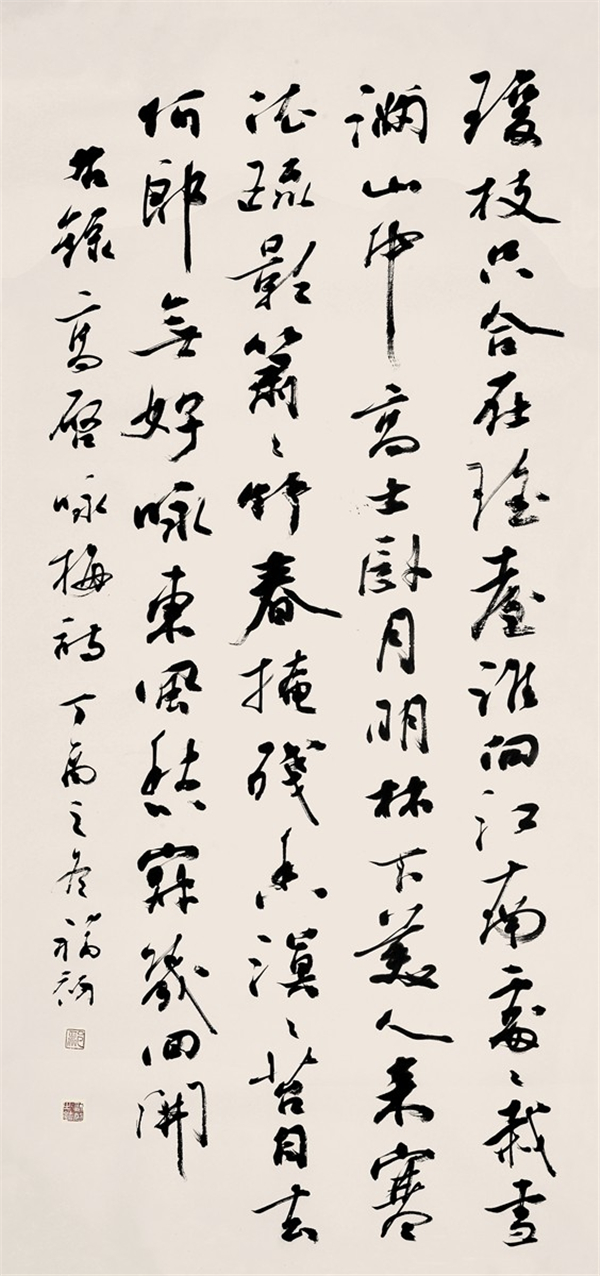 瓊枝只合在瑤臺誰向江南處〻栽雪
滿山中高士臥月明林下美人來寒
依疏影蕭〻竹春掩殘香漠〻苔自去
何郎無好咏東風愁寂幾回開
右錄高啓咏梅詩丁酉之冬福